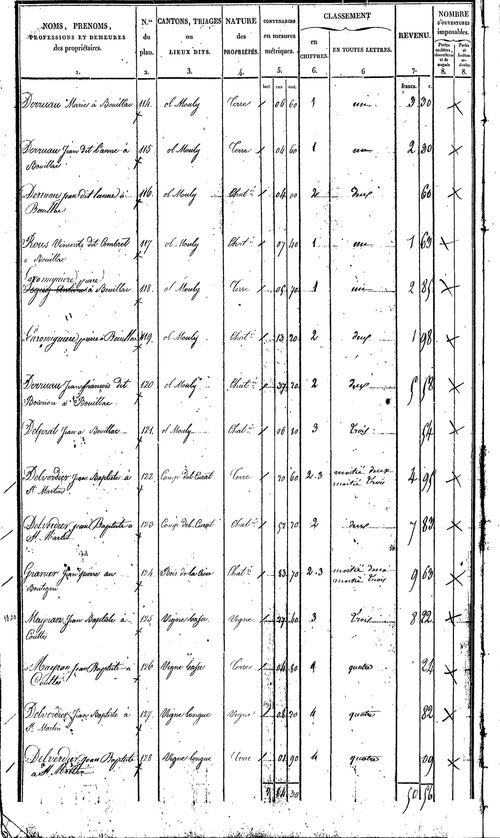 NOMS, PRENOMS,
PROFESSIONS ET DEMEURES
des propriétaires.
N.os
du
plan.
CANTONS, TRIAGES
ou
LIEUX DITS.
NATURE
des
PROPRIÉTÉS.
CONTENANCES
en mesures
métriques.
CLASSEMENT
en
CHIFFRES.
EN TOUTES LETTRES.
REVENU.
NOMBRE
D'OUVERTURES
imposables.
1. 2. 3. 4. 5. 6. 6 7. 8. 8.
francs. c.
Marie à Bouillac 114. al Mouly Terre 06 60 1 un 3 30
Jean dit l'anne à 115 al Mouly Terre 04 60 1 un 2 30
Bouillac
Jean dit l'anne à 116. al Mouly Chat. 04 00 2 deux 60
Bouillac
Rous Vincent dit Combret 117 al Mouly Chat. 07 40 1 un 1 63
à Bouillac
Laromiguiere pierre
à Bouillac 118. al Mouly Terre 05 70 1 un 2 85
Laromiguiere pierre à Bouillac 119. al Mouly Chat. 13 20 2 deux 1 98
Jean françois dit 120 al Mouly Chat. 37 20 2 deux 5 58
à Bouillac
Delprat Jean à Bouillac 121. al Mouly Chat. 06 80 3 trois 54
Delverdier Jean Baptiste à 122 Camp del Curat Terre 20 60 2-3 moitié deux 4 95
St. Martin moitié trois
Delverdier Jean Baptiste à 123 Camp del Curat Chat. 52 20 2 deux 7 83
St. Martin
Granier Jean pierre au 124 Bois de la Chat. 83 70 2-3 moitié deux 9 63
moitié trois
Mayran Jean Baptiste à 125 Vigne basse Vigne 27 40 3 trois 8 22
Mayran Jean Baptiste à 126 Vigne basse Terre 04 80 4 quatre 24
Delverdier Jean Baptiste à 127. Vigne longue Vigne 08 20 4 quatre 82
St. Martin
Delverdier Jean Baptiste 128 Vigne longue Terre 01 90 4 quatre 09
à St. Martin
2 84 30 50 56